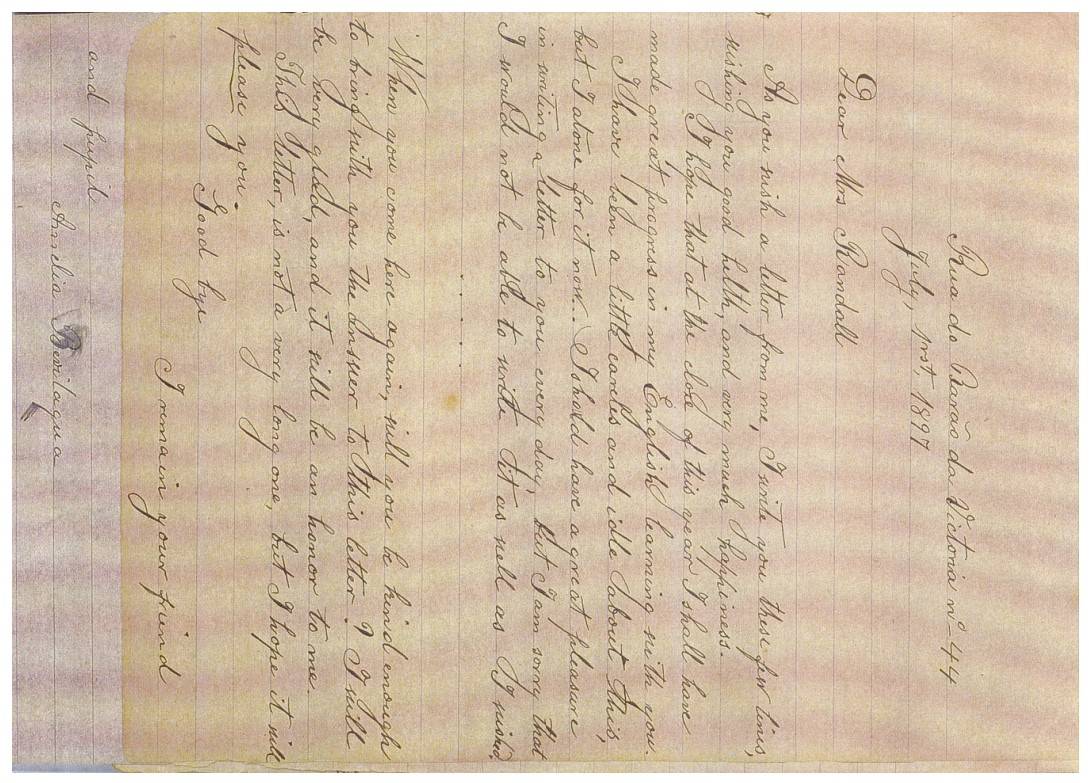 Rua do Barão da Victoria nº-44
July, prst, 1897
Dear Mrs Randall
As you wish a letter from me, I write you these few lines,
wishing you good helth, and very much happiness.
I hope that at the close of this year I shall have
made great progress in my English learning with you.
I have been a little carless and idle about this,
but I atone for it now... I shold have a great pleasure
in writing a letter to you every day, but I am sory that
I would not be able to write it as well as I wished.
. . . . . .
When you come here again, will you be kind enough
to bring with you the answer to this letter? I will
be very glad, and it will be an honor to me.
This letter, is not a very long one, but I hope it will
please you.
Good bye
I remain your friend
and pupil
Amelia Bevilaqua